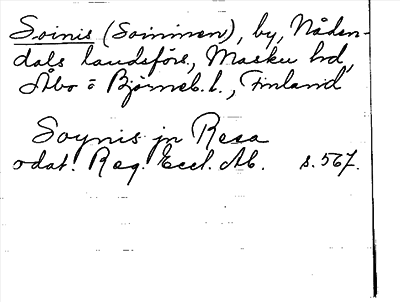 Soinis (Soininen), by, Nåden-
dals landsförs., Masku hd,
Åbo o Björneb. l., Finland
Soynis jn Resa
odat. Reg. Eccl. Ab. s. 567.